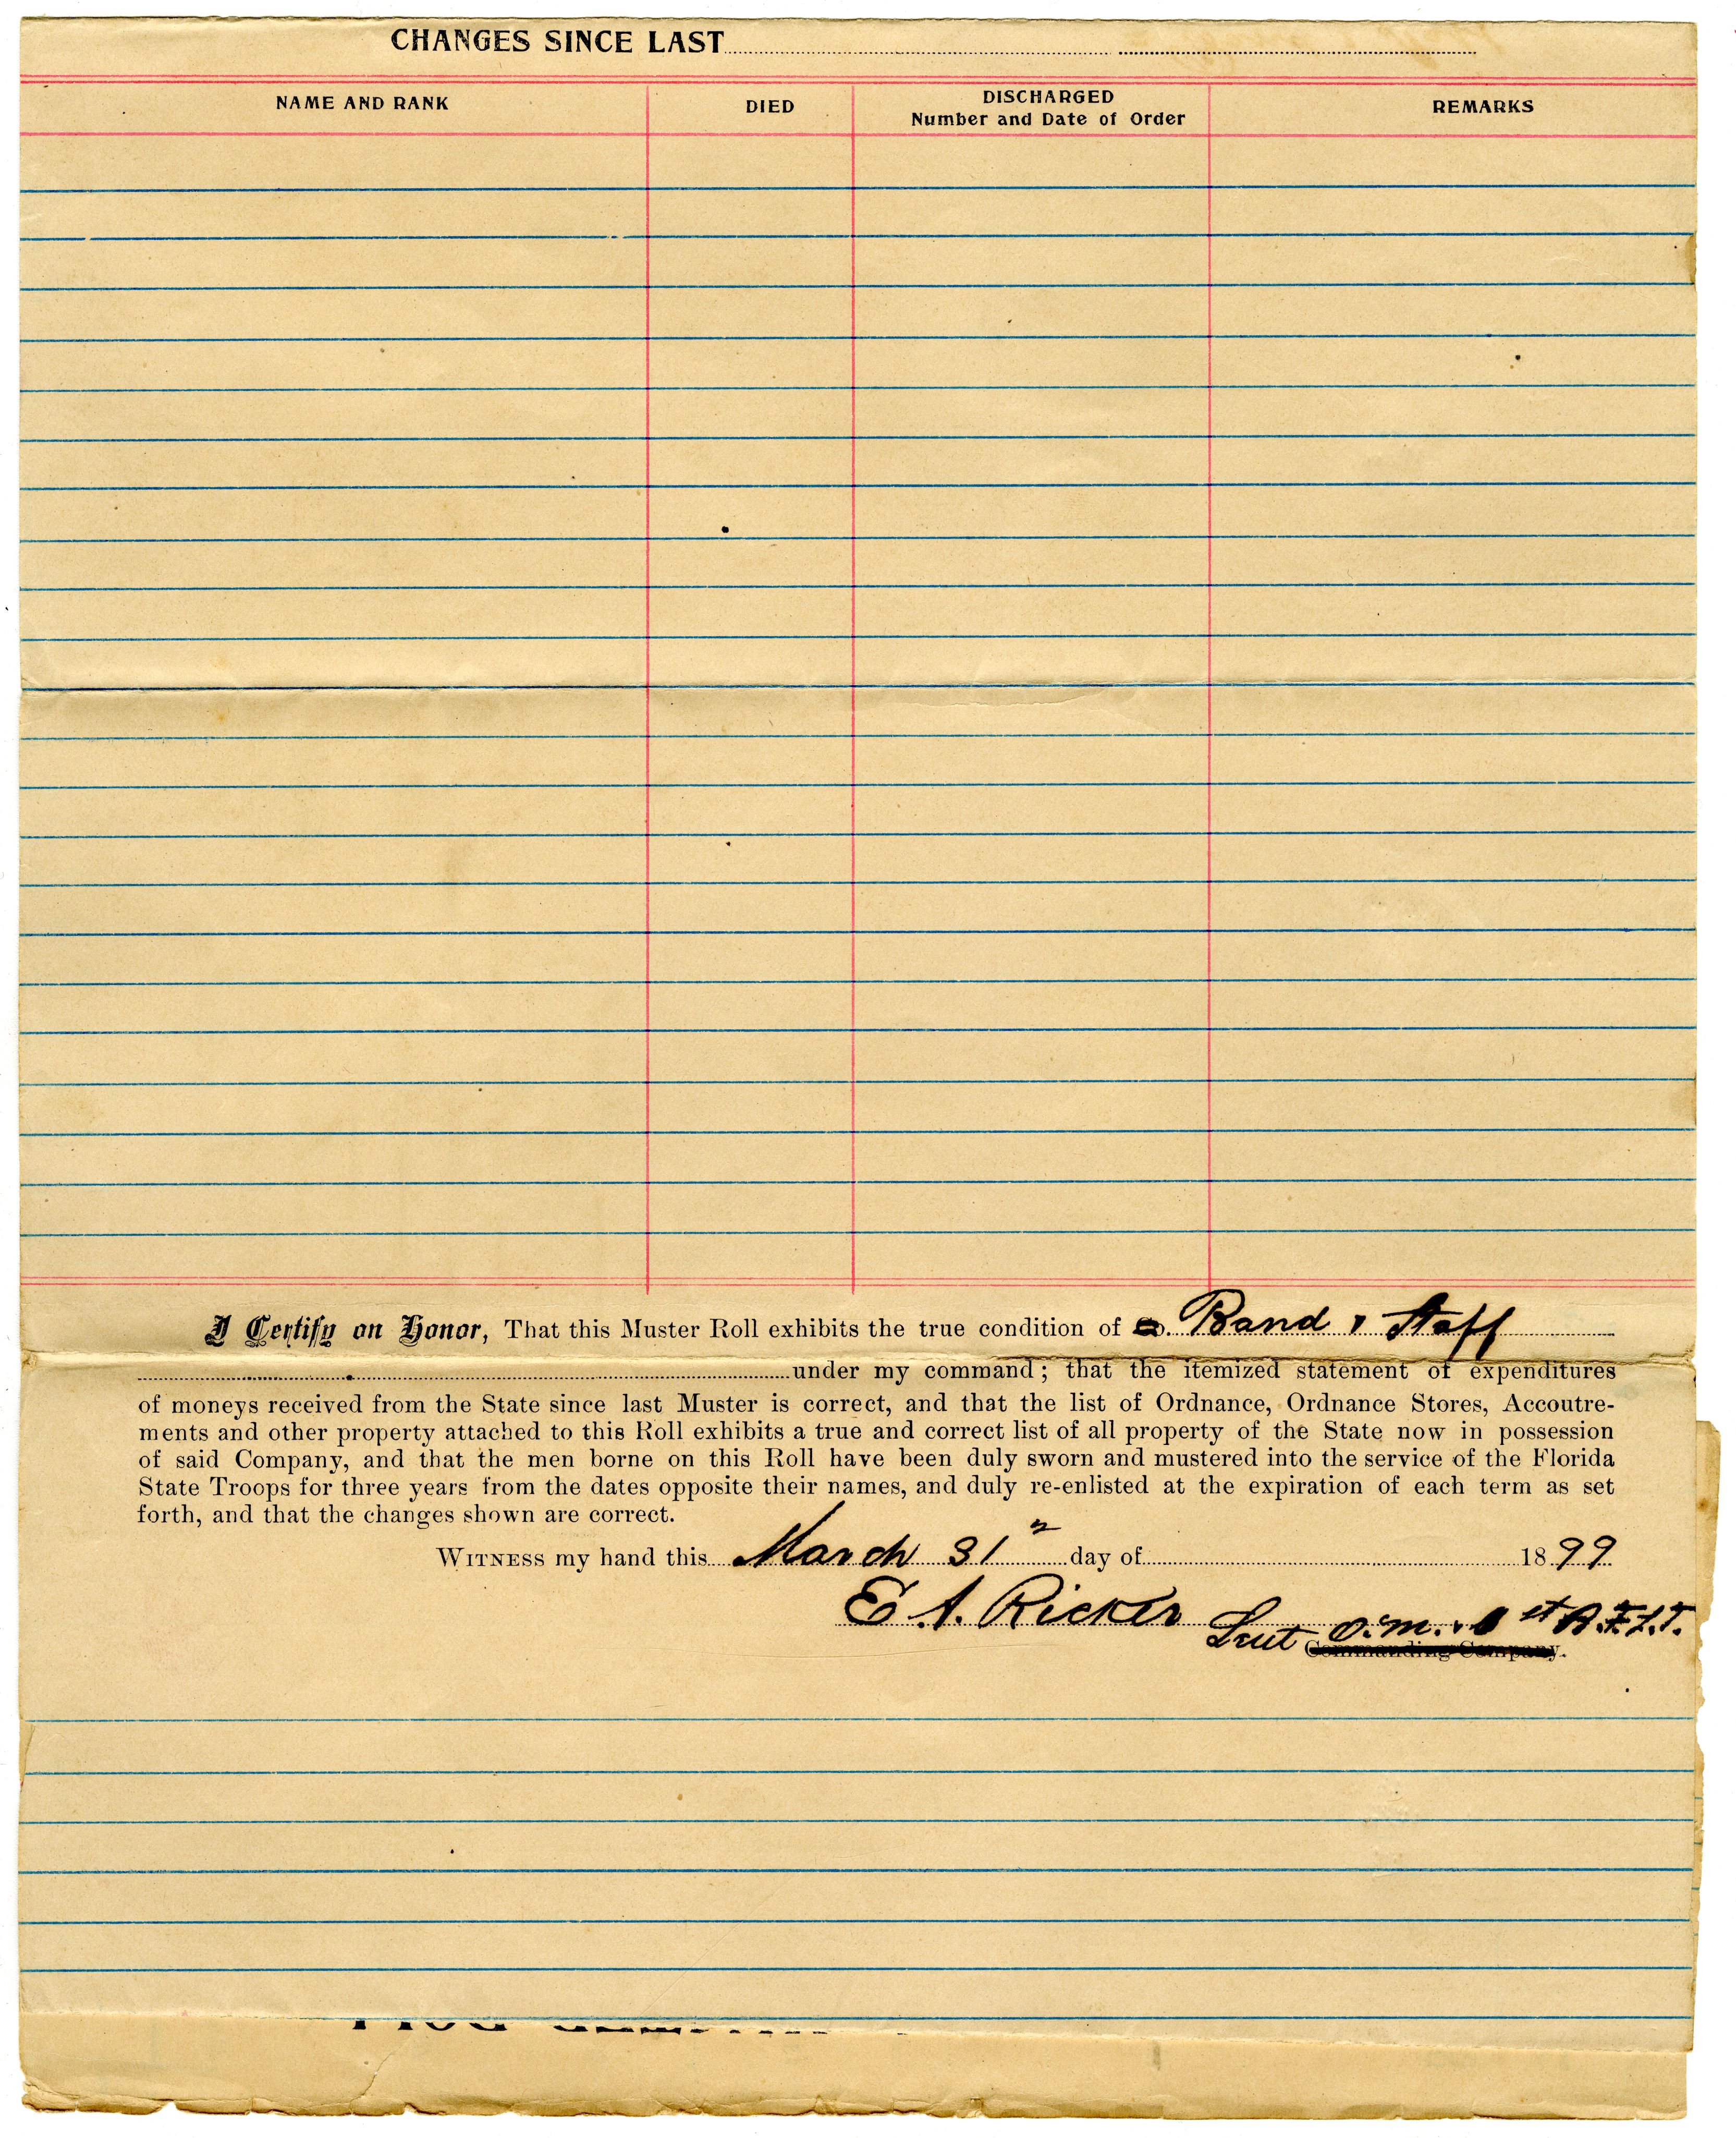 CHANGES SINCE LAST
NAME AND RANK DIED DISCHARGED Number and Date of Order REMARKS
I Certify on Honor, That this Muster Roll exhibits the true condition of Co. Band & Staff
under my command; that the itemized statement of expenditures
of moneys received from the State since last Muster is correct, and that the list of Ordnance, Ordnance Stores, Accoutre-
ments and other property attached to this Roll exhibits a true and correct list of all property of the State now in possession
of said Company, and that the men borne on this Roll have been duly sworn and mustered into the service of the Florida
State Troops for three years from the dates opposite their names, and duly re-enlisted at the expiration of each term as set
forth, and that the changes shown are correct.
WITNESS my hand this March 31 day of 1899
E. A. Ricker Lieut
Commanding Company.